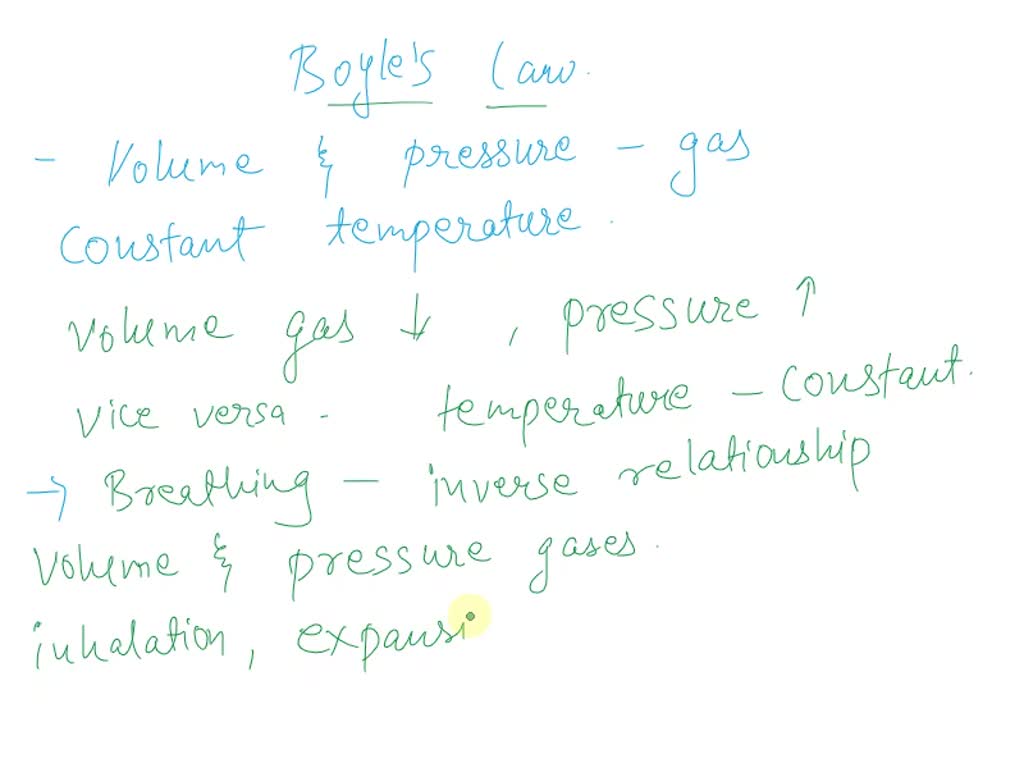 Boyle's Law.
- Volume & pressure - gas
Constant temperature.
Volume gas ↓, pressure ↑
Vice versa. temperature - Constant.
→ Breathing - inverse relationship
Volume & pressure gases.
inhalation, expansi